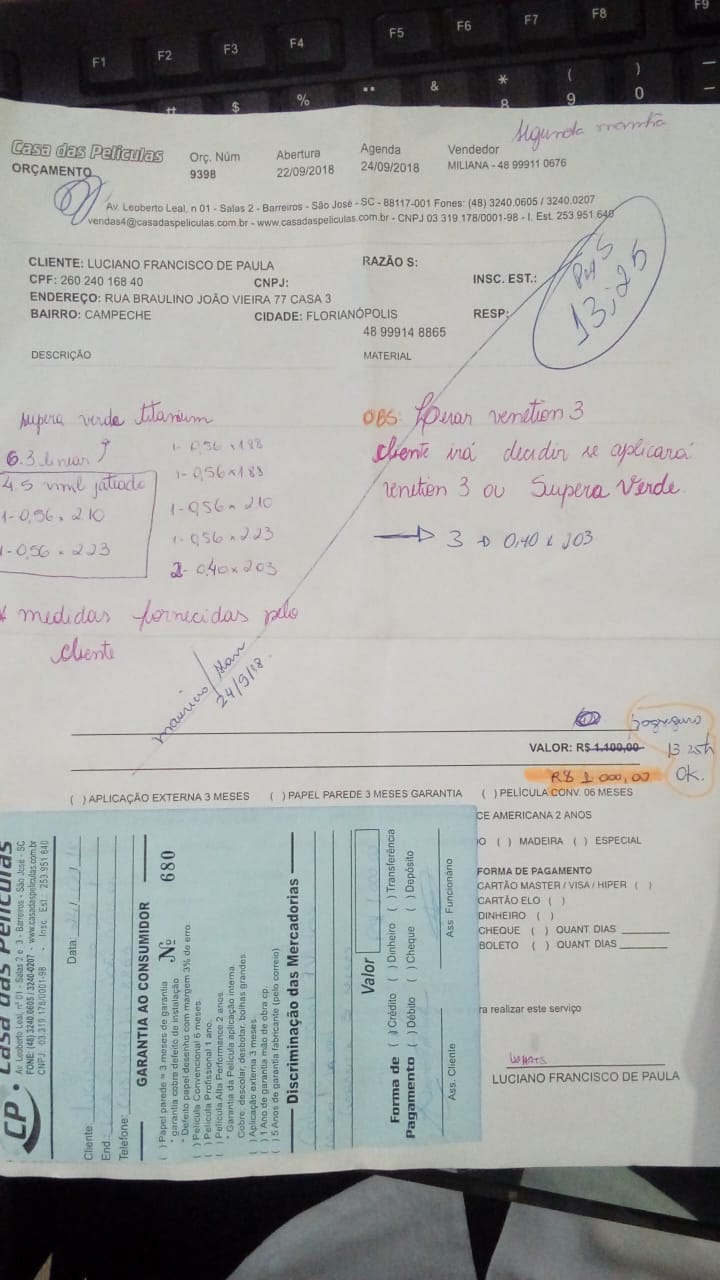 F1 F2 F3 F4 F5 F6 F7 F8 F9
# $ % & * ( )
8 9 0
Segunda manhã
Casa das Películas
ORÇAMENTO
Orç. Núm
9398
Abertura
22/09/2018
Agenda
24/09/2018
Vendedor
MILIANA - 48 99911 0676
Av. Leoberto Leal, n 01 - Salas 2 - Barreiros - São José - SC - 88117-001 Fones: (48) 3240.0605 / 3240.0207
vendas4@casadaspeliculas.com.br - www.casadaspeliculas.com.br - CNPJ 03.319.178/0001-98 - I. Est. 253.951.640
13:25
CLIENTE: LUCIANO FRANCISCO DE PAULA
RAZÃO S:
CPF: 260 240 168 40
CNPJ:
INSC. EST.:
ENDEREÇO: RUA BRAULINO JOÃO VIEIRA 77 CASA 3
BAIRRO: CAMPECHE
CIDADE: FLORIANÓPOLIS
RESP:
48 99914 8865
DESCRIÇÃO
MATERIAL
supera verde titanium
6.3 linear
4.5 vinil jatiado
1-0,56 x 210
1-0,56 x 223
1-0,56 x 188
1-0,56 x 188
1-0,56 x 210
1-0,56 x 223
2-0,40 x 203
* medidas fornecidas pelo
cliente
OBS: Levar venetion 3
cliente irá decidir se aplicará
venetion 3 ou Supera Verde.
3 → 0,40 x 203
mauricio / Alan
24/9/18
VALOR: R$ 1.100,00
R$ 1 000,00
pagseguro
13 25h
OK.
( ) APLICAÇÃO EXTERNA 3 MESES ( ) PAPEL PAREDE 3 MESES GARANTIA ( ) PELÍCULA CONV. 06 MESES
CE AMERICANA 2 ANOS
O ( ) MADEIRA ( ) ESPECIAL
FORMA DE PAGAMENTO
CARTÃO MASTER / VISA / HIPER ( )
CARTÃO ELO ( )
DINHEIRO ( )
CHEQUE ( ) QUANT DIAS
BOLETO ( ) QUANT DIAS
ra realizar este serviço
WHATS
LUCIANO FRANCISCO DE PAULA
CP. Casa das Películas
Av. Leoberto Leal, nº 01 - Salas 2 e 3 - Barreiros - São José - SC
FONE: (48) 3240.0605 / 3240-0207 - www.casadaspeliculas.com.br
CNPJ: 03.319.178/0001-98 - Insc. Est.: 253.951.640
Data:
Cliente:
End.:
Telefone:
GARANTIA AO CONSUMIDOR Nº 680
( ) Papel parede = 3 meses de garantia
* garantia cobre defeito de instalação
* Defeito papel desenho com margem 3% de erro
( ) Película Convencional 6 meses
( ) Película Profissional 1 ano
( ) Película Alta Performance 2 anos
* Garantia da Película aplicação interna
Cobre: descolar, desbotar, bolhas grandes
( ) Aplicação externa 3 meses
( ) 1 Ano de garantia mão de obra cp.
( ) 5 Anos de garantia fabricante (pelo correio)
Discriminação das Mercadorias
Valor
Forma de Pagamento
( ) Crédito ( ) Dinheiro ( ) Transferência
( ) Débito ( ) Cheque ( ) Depósito
Ass. Cliente
Ass. Funcionário